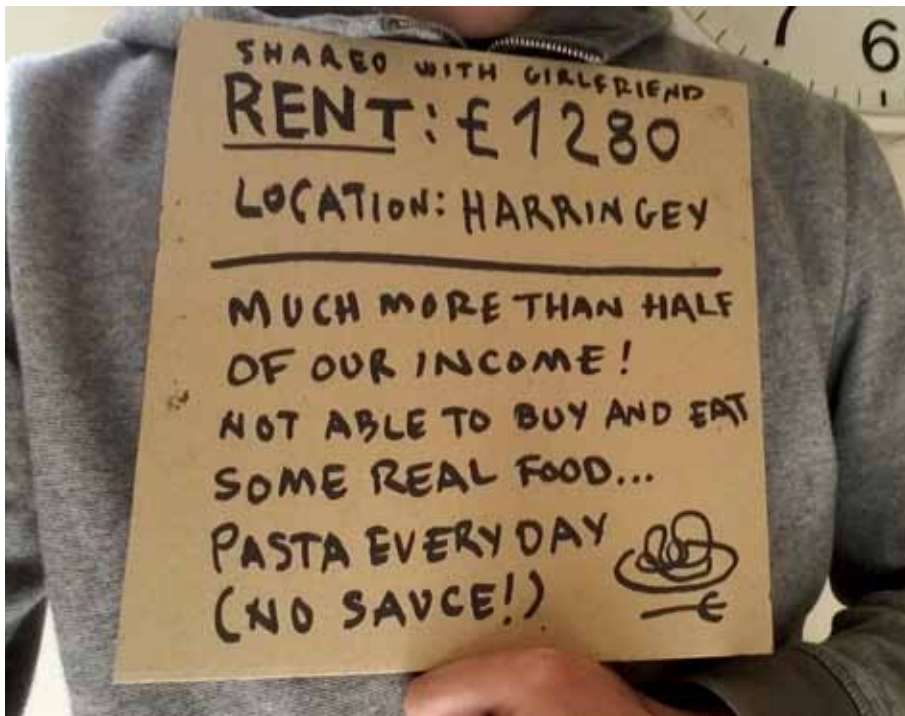 SHARED WITH GIRLFRIEND
RENT: £1280
LOCATION: HARRINGEY
MUCH MORE THAN HALF
OF OUR INCOME!
NOT ABLE TO BUY AND EAT
SOME REAL FOOD...
PASTA EVERY DAY
(NO SAUCE!)
7 6